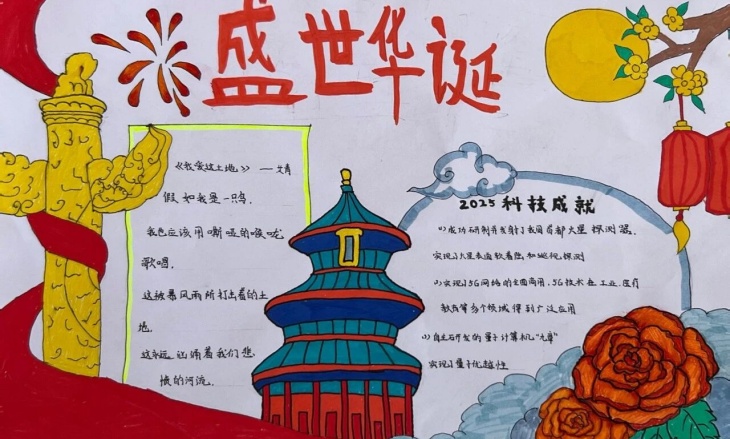 盛世华诞
《我爱这土地》——艾青
假如我是一只鸟,
我也应该用嘶哑的喉咙
歌唱:
这被暴风雨所打击着的土
地,
这永远汹涌着我们悲
愤的河流,
2025科技成就
(1)成功研制并发射了我国首都火星探测器,
实现了火星表面软着陆和巡视探测
(2)实现了5G网络的全面商用,5G技术在工业、医疗
教育等多个领域得到广泛应用
(3)自主研发的量子计算机"九章"
实现了量子优越性